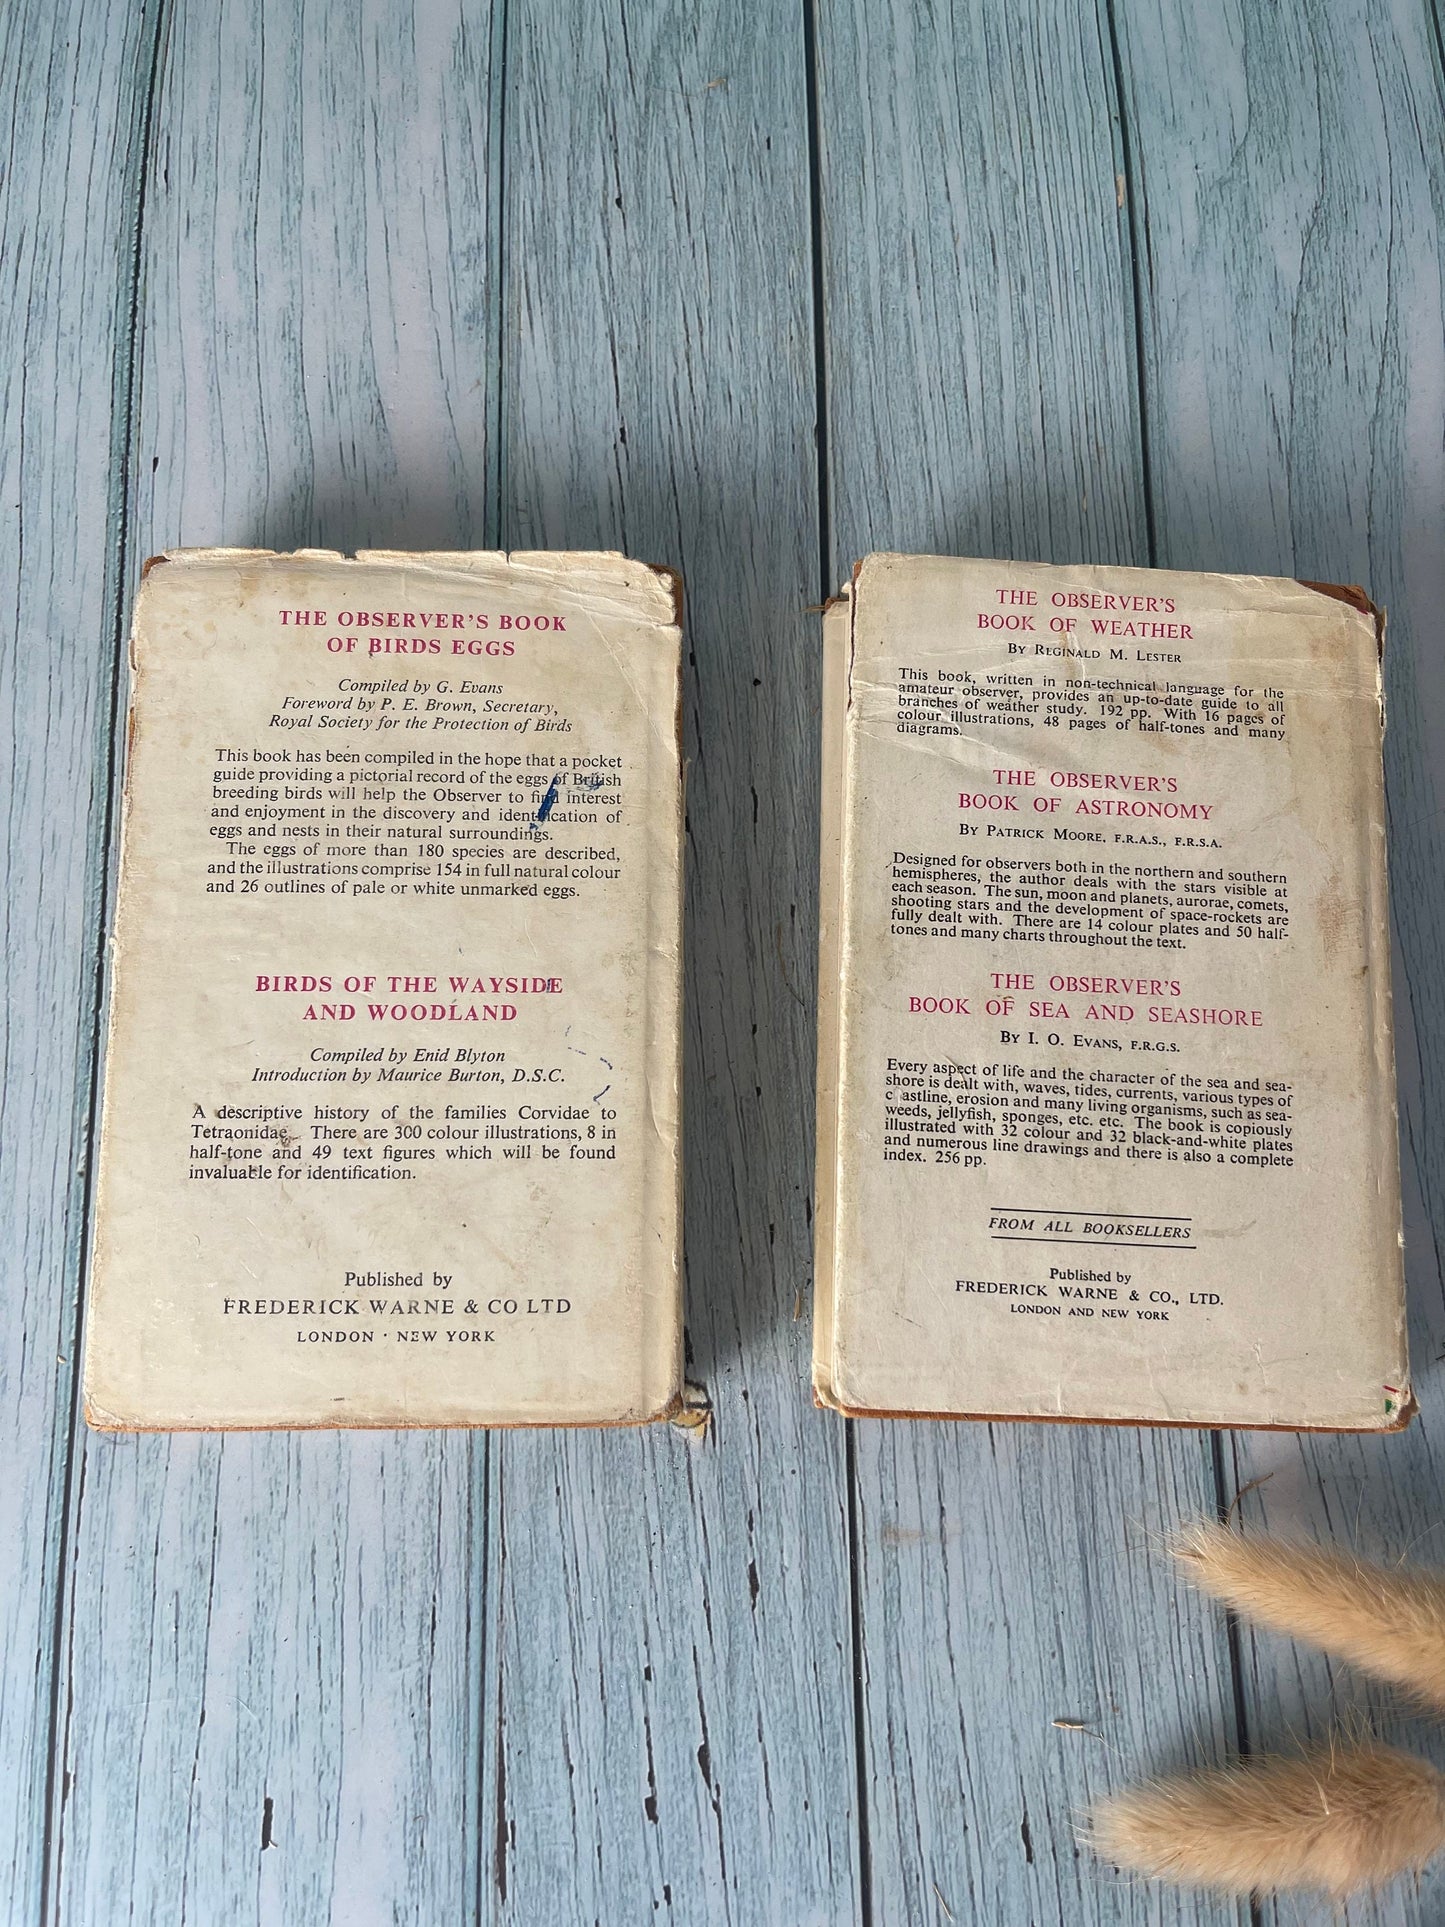 THE OBSERVER'S BOOK
OF BIRDS EGGS
Compiled by G. Evans
Foreword by P. E. Brown, Secretary,
Royal Society for the Protection of Birds
This book has been compiled in the hope that a pocket
guide providing a pictorial record of the eggs of British
breeding birds will help the Observer to find interest
and enjoyment in the discovery and identification of
eggs and nests in their natural surroundings.
The eggs of more than 180 species are described,
and the illustrations comprise 154 in full natural colour
and 26 outlines of pale or white unmarked eggs.
BIRDS OF THE WAYSIDE
AND WOODLAND
Compiled by Enid Blyton
Introduction by Maurice Burton, D.S.C.
A descriptive history of the families Corvidae to
Tetraonidae. There are 300 colour illustrations, 8 in
half-tone and 49 text figures which will be found
invaluable for identification.
Published by
FREDERICK WARNE & CO LTD
LONDON · NEW YORK
THE OBSERVER'S
BOOK OF WEATHER
BY REGINALD M. LESTER
This book, written in non-technical language for the
amateur observer, provides an up-to-date guide to all
branches of weather study. 192 pp. With 16 pages of
colour illustrations, 48 pages of half-tones and many
diagrams.
THE OBSERVER'S
BOOK OF ASTRONOMY
BY PATRICK MOORE, F.R.A.S., F.R.S.A.
Designed for observers both in the northern and southern
hemispheres, the author deals with the stars visible at
each season. The sun, moon and planets, aurorae, comets,
shooting stars and the development of space-rockets are
fully dealt with. There are 14 colour plates and 50 half-
tones and many charts throughout the text.
THE OBSERVER'S
BOOK OF SEA AND SEASHORE
BY I. O. EVANS, F.R.G.S.
Every aspect of life and the character of the sea and sea-
shore is dealt with, waves, tides, currents, various types of
c astline, erosion and many living organisms, such as sea-
weeds, jellyfish, sponges, etc. etc. The book is copiously
illustrated with 32 colour and 32 black-and-white plates
and numerous line drawings and there is also a complete
index. 256 pp.
FROM ALL BOOKSELLERS
Published by
FREDERICK WARNE & CO., LTD.
LONDON AND NEW YORK